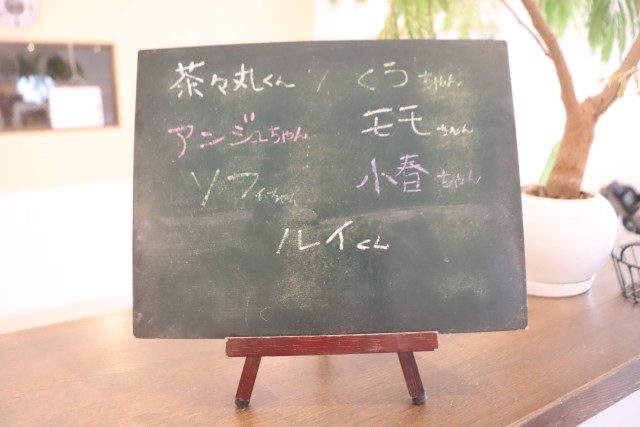 茶々丸くん くうちゃん
アンジュちゃん モモちゃん
ソフィーちゃん 小春ちゃん
ルイくん